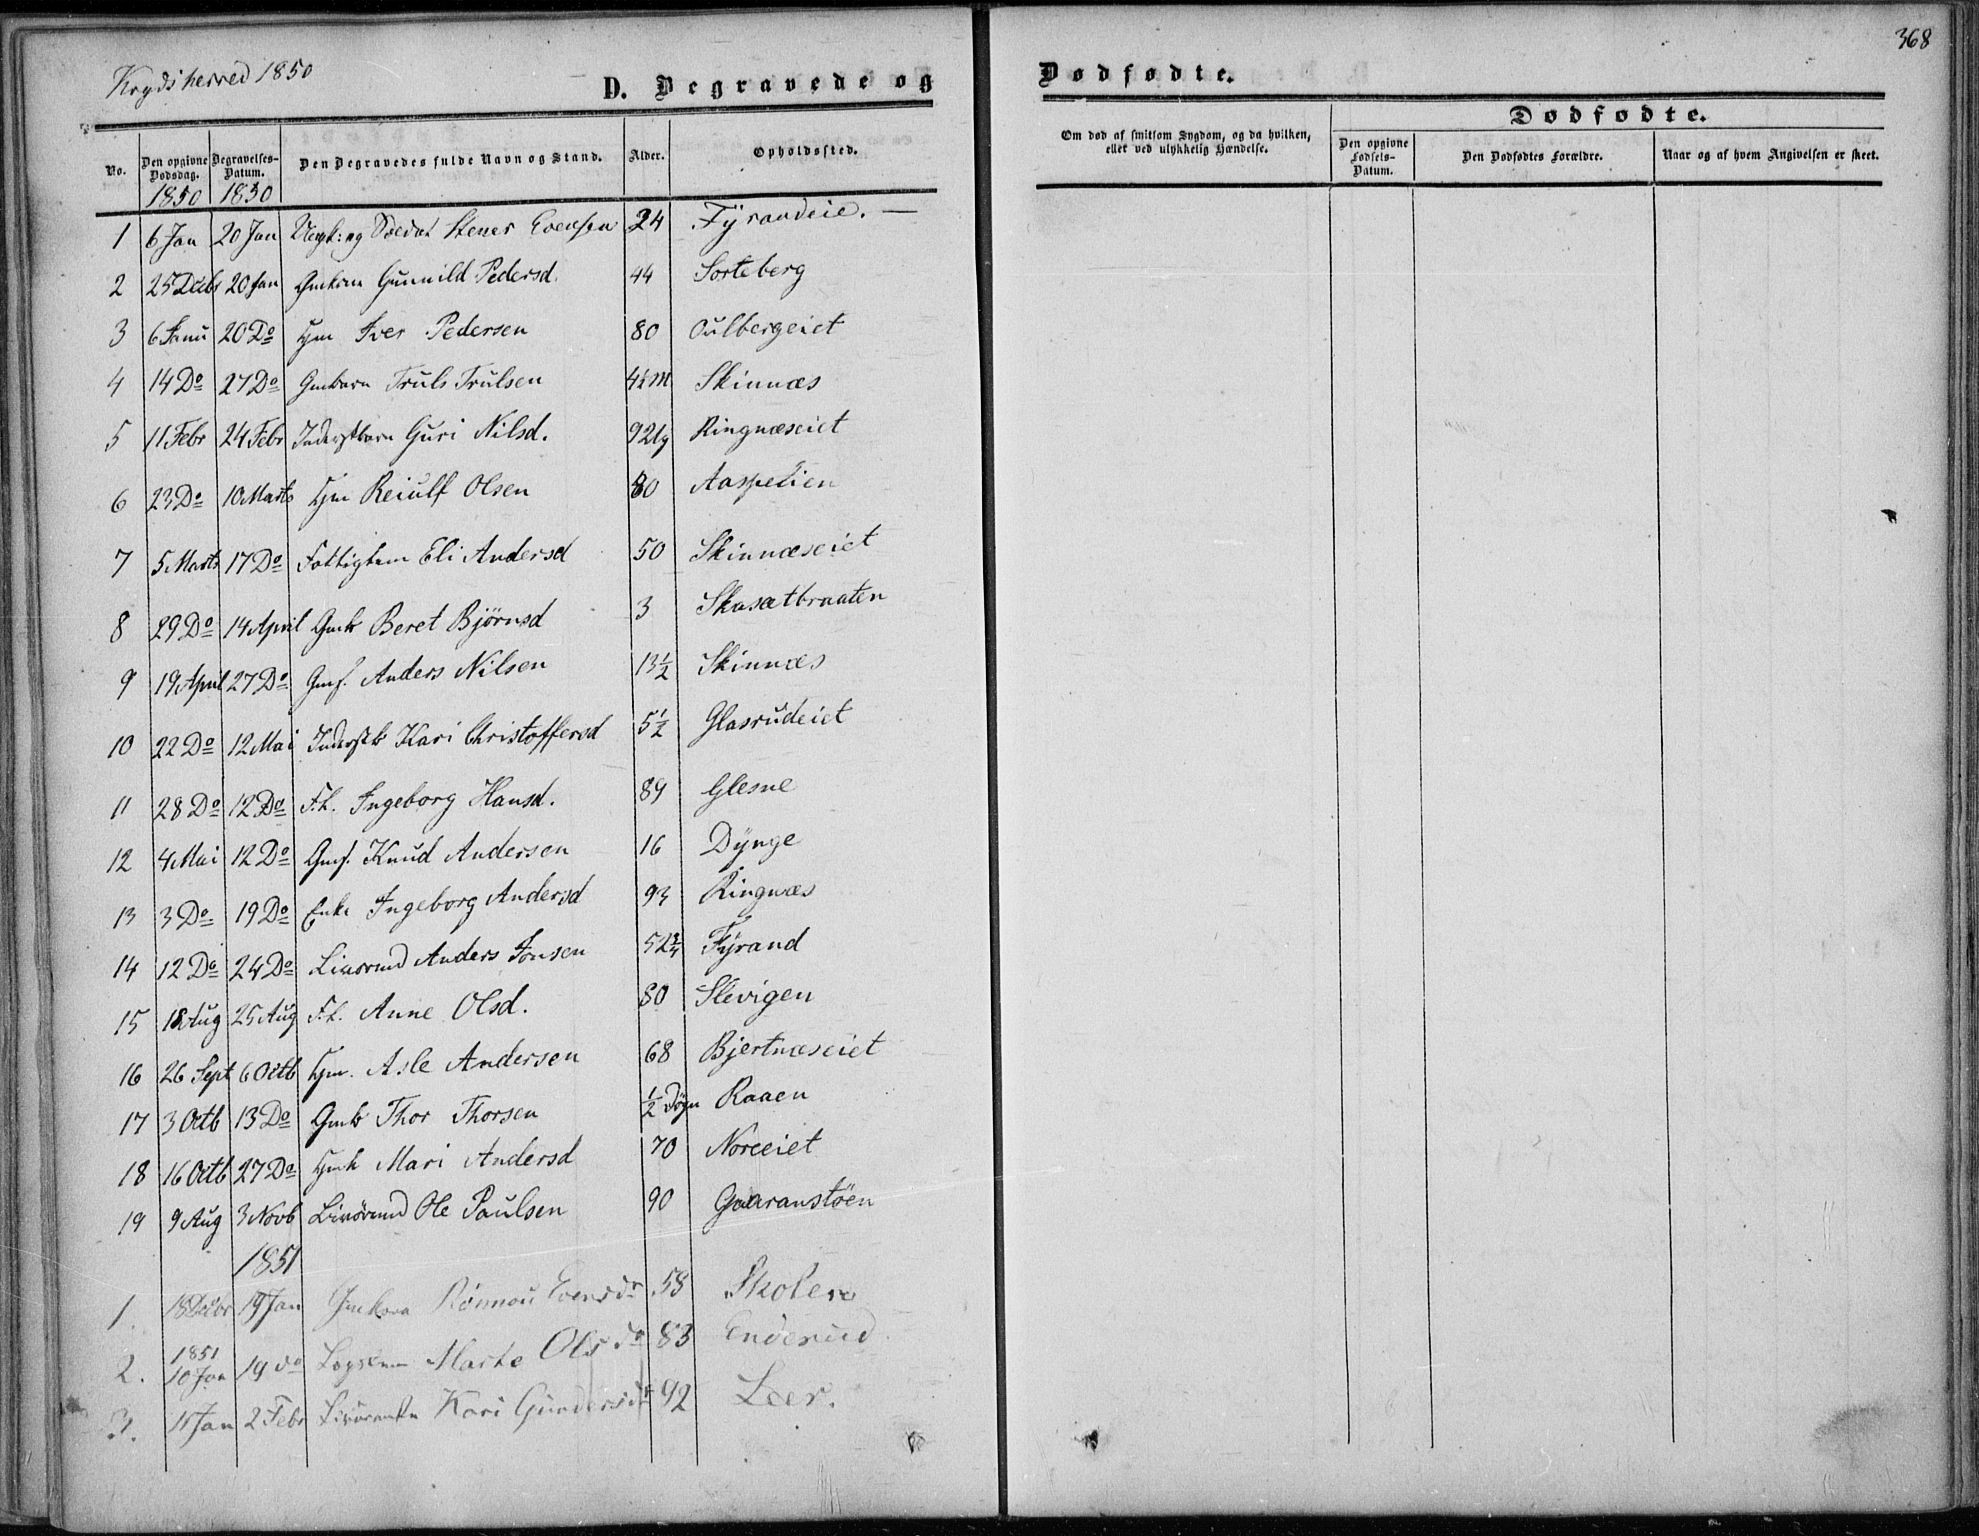 368
Krydsherred 1850
D. Begravede og Dødfødte.
No.
Den opgivne Dødsdag.
Begravelses-Datum.
Den Begravedes fulde Navn og Stand.
Alder.
Opholdssted.
Om død af smitsom Sygdom, og da hvilken,
eller ved ulykkelig Hændelse.
Dødfødte.
Den opgivne Fødsels-Datum.
Den Dødfødtes Forældre.
Naar og af hvem Angivelsen er skeet.
1850 1850
1 6 Jan 20 Jan Ungk: og Soldat Stener Evensen 24 Fÿrandeie. —
2 25 Decbr 20 Jan Gmkone Gunnild Pedersd. 44 Sorteberg
3 6 Janu 20 Do Hm Iver Pedersen 80 Oulbergeiet
4 14 Do 27 Do Gmbarn Truls Trulsen 4½ M Skinnæs
5 11 Febr 24 Febr Inderstbarn Guri Nilsd. Ringnæseiet
6 23 Do 10 Marts Hm Reiulf Olsen 80 Aaspelien
7 5 Marts 17 Do Fattiglem Eli Andersd 50 Skinnæseiet
8 29 Do 14 April Gmb Beret Bjørnsd 3 Skasætbraaten
9 19 April 27 Do Gmf. Anders Nilsen 13½ Skinnæs
10 22 Do 12 Mai Inderstb Kari Christoffersd 5½ Glasrudeiet
11 28 Do 12 Do F.l. Ingeborg Hansd. 89 Glesne
12 4 Mai 12 Do Gmf. Knud Andersen 16 Dÿnge
13 3 Do 19 Do Enke Ingeborg Andersd 93 Ringnæs
14 12 Do 24 Do Livørmd Anders Jonsen 52¾ Fÿrand
15 18 Aug 25 Aug F.l. Anne Olsd. 80 Slevigen
16 26 Sept 6 Octb Hm. Asle Andersen 68 Bjertnæseiet
17 3 Octb 13 Do Gmb Thor Thorsen ½ Døgn Raaen
18 16 Octb 27 Do Hmk Mari Andersd 70 Noreeiet
19 9 Aug 3 Novb Livørmd Ole Paulsen 90 Gaaranstøen
1851
1. 18 Decbr 19 Jan Gmkone Rønnou Evensdr 58 Skolen
1851
2. 10 Jan 19 do Marte Olsdr 83 Enderud
3. 11 Jan 2 Febr Kari Gundersdr 92 Leer.